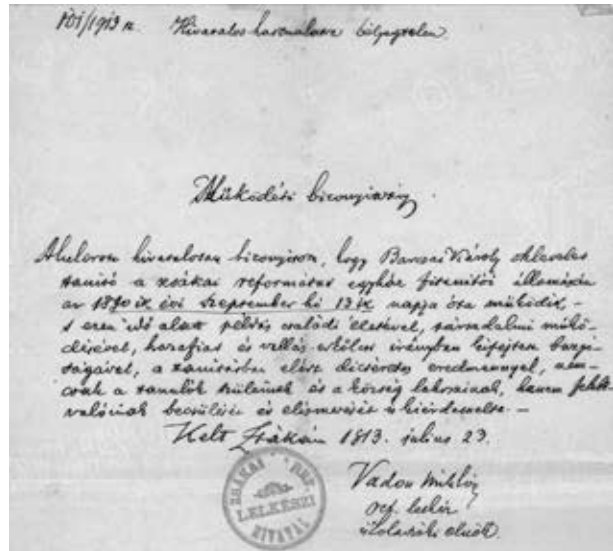 101/1913 n. Hivatalos használatra bélyegtelen.
Működési bizonyítvány.
Alulírott hivatalosan bizonyítom, hogy Barcsai Károly okleveles
tanító a zsákai református egyház fitanítói állomásán
az 1890 ik évi szeptember hó 13 ik napja óta működik, –
s ezen idő alatt példás családi életével, társadalmi műkö-
désével, hazafias és vallás erkölcsi irányban kifejtett buzgó-
ságával, a tanításban elért dicséretes eredménnyel, nem-
csak a tanulók szüleinek és a község lakosainak, hanem felebb
valóinak becsülését és elismerését is kiérdemelte. –
Kelt Zsákán 1913. július 23.
Vadon Miklós
ref. lelkész
iskolaszéki elnök.
ZSÁKAI REF. LELKÉSZI HIVATAL